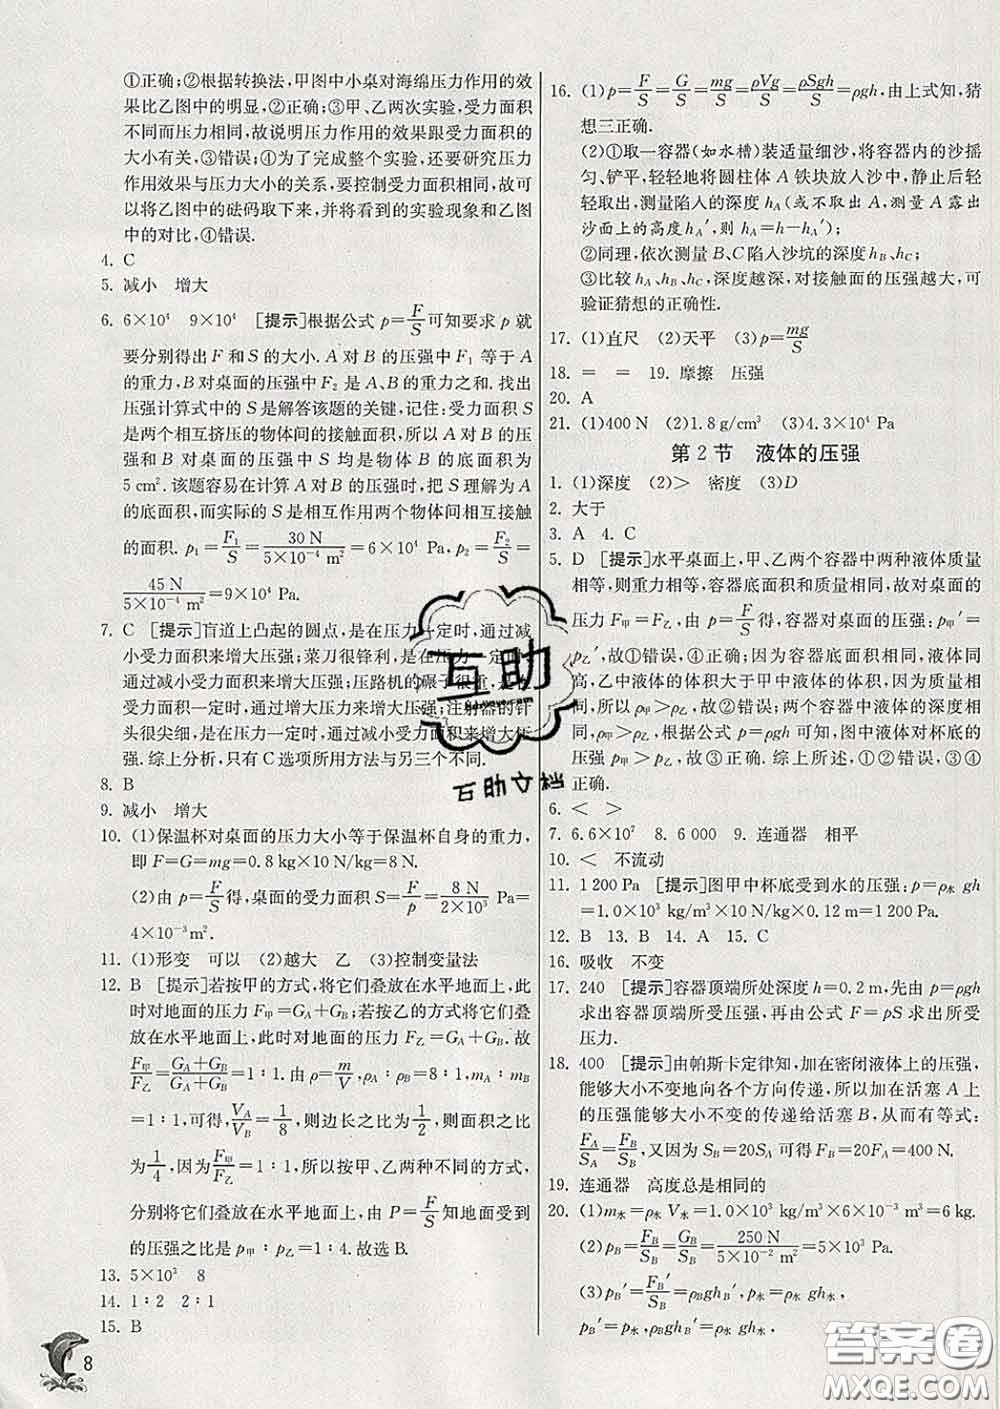 ①正确;②根据转换法,甲图中小桌对海绵压力作用的效
果比乙图中的明显,②正确;③甲、乙两次实验,受力面积
不同而压力相同,故说明压力作用的效果跟受力面积的
大小有关,③错误;④为了完成整个实验,还要研究压力
作用效果与压力大小的关系,要控制受力面积相同,故可
以将甲图中的砝码取下来,并将看到的实验现象和乙图
中的对比,④错误.
4. C
5. 减小 增大
6. 6×10⁴ 9×10⁴ [提示]根据公式 p=F/S可知要求 p 就
要分别得出 F 和 S 的大小. A 对 B 的压强中 F₁ 等于 A
的重力,B 对桌面的压强中 F₂ 是 A、B 的重力之和. 找出
压强计算式中的 S 是解答该题的关键,记住:受力面积 S
是两个相互挤压的物体间的接触面积,所以 A 对 B 的压
强和 B 对桌面的压强中 S 均是物体 B 的底面积为
5 cm². 该题容易在计算 A 对 B 的压强时,把 S 理解为 A
的底面积,而实际的 S 是相互作用两个物体间相互接触
的面积. p₁=F₁/S=30 N/(5×10⁻⁴ m²)=6×10⁴ Pa,p₂=F₂/S=
45 N/(5×10⁻⁴ m²)=9×10⁴ Pa.
7. C [提示]盲道上凸起的圆点,是在压力一定时,通过减
小受力面积来增大压强;菜刀很锋利,是在压力一定时,
通过减小受力面积来增大压强;压路机的碾子很重,是在
受力面积一定时,通过增大压力来增大压强;注射器的针
头很尖细,是在压力一定时,通过减小受力面积来增大压
强. 综上分析,只有 C 选项所用方法与另三个不同.
8. B
9. 减小 增大
10. (1)保温杯对桌面的压力大小等于保温杯自身的重力,
即 F=G=mg=0.8 kg×10 N/kg=8 N.
(2)由 p=F/S得,桌面的受力面积 S=F/p=8 N/(2×10³ Pa)=
4×10⁻³m².
11. (1)形变 可以 (2)越大 乙 (3)控制变量法
12. B [提示]若按甲的方式,将它们叠放在水平地面上,此
时对地面的压力 F甲=G_A+G_B;若按乙的方式将它们叠
放在水平地面上,此时对地面的压力 F乙=G_A+G_B. 故
F甲/F乙=(G_A+G_B)/(G_A+G_B)=1:1. 由 ρ=m/V,ρ_A:ρ_B=1:1,m_A:m_B
=1:1,可得,V_A/V_B=1/8,则边长之比为1/2,则面积之比为
1/4,又因为F甲/F乙=1:1,所以按甲、乙两种不同的方式,
分别将它们叠放在水平地面上,由 P=F/S知地面受到
的压强之比是 p甲:p乙=1:4. 故选 B.
13. 5×10³ 8
14. 1:2 2:1
15. B
16. (1)p=F/S=G/S=mg/S=ρVg/S=ρSgh/S=ρgh,由上式知,猜
想三正确.
(2)①取一容器(如水槽)装适量细沙,将容器内的沙摇
匀、铲平,轻轻地将圆柱体 A 铁块放入沙中,静止后轻
轻取出,测量陷入的深度 h_A(或不取出 A,测量 A 露出
沙面上的高度 h_A′,则 h_A=h-h_A′);
②同理,依次测量 B、C 陷入沙坑的深度 h_B、h_C;
③比较 h_A、h_B、h_C,深度越深,对接触面的压强越大,可
验证猜想的正确性.
17. (1)直尺 (2)天平 (3)p=mg/S
18. = = 19. 摩擦 压强
20. A
21. (1)400 N (2)1.8 g/cm³ (3)4.3×10⁴ Pa
第 2 节 液体的压强
1. (1)深度 (2)> 密度 (3)D
2. 大于
3. A 4. C
5. D [提示]水平桌面上,甲、乙两个容器中两种液体质量
相等,则重力相等,容器底面积和质量相同,故对桌面的
压力 F甲=F乙,故由 p=F/S得,容器对桌面的压强:p甲′=
p乙′,故①错误,④正确;因为容器底面积相同,液体同
高,乙中液体的体积大于甲中液体的体积,因为质量相
同,所以 ρ甲>ρ乙,故②错误;两个容器中的液体深度相
同,ρ甲>ρ乙,根据公式 p=ρgh 可知,图中液体对杯底的
压强 p甲>p乙,故③正确. 综上所述,①②错误,③④
正确.
6. < >
7. 6.6×10⁷ 8. 6 000 9. 连通器 相平
10. < 不流动
11. 1 200 Pa [提示]图甲中杯底受到水的压强:p=ρ水 gh
=1.0×10³ kg/m³×10 N/kg×0.12 m=1 200 Pa.
12. B 13. B 14. A 15. C
16. 吸收 不变
17. 240 [提示]容器顶端所处深度 h=0.2 m,先由 p=ρgh
求出容器顶端所受压强,再由公式 F=pS 求出所受
压力.
18. 400 [提示]由帕斯卡定律知,加在密闭液体上的压强,
能够大小不变地向各个方向传递,所以加在活塞 A 上
的压强能够大小不变的传递给活塞 B,从而有等式:
F_A/S_A=F_B/S_B,又因为 S_B=20S_A 可得 F_B=20F_A=400 N.
19. 连通器 高度总是相同的
20. (1)m水=ρ水 V水=1.0×10³ kg/m³×6×10⁻³ m³=6 kg.
(2)p_B=F_B/S_B=G_B/S_B=250 N/(5×10⁻² m²)=5×10³ Pa.
(3)p_B′=F_B′/S_B=ρ_B gh_B′,p水=ρ水 gh水,
p_B′=p水,ρ_B gh_B′=ρ水 gh水,
8
互助
互助文档
答案圈
MXQE.COM